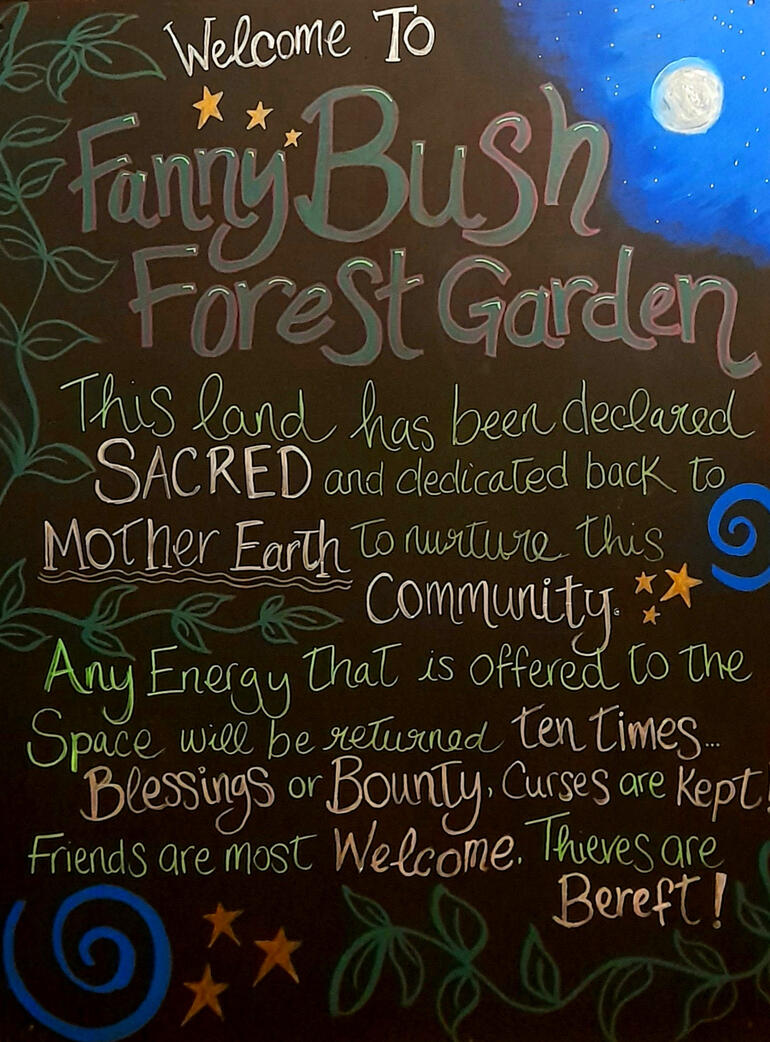 Welcome To
Fanny Bush
Forest Garden
This land has been declared
SACRED and dedicated back to
Mother Earth to nurture this
Community.
Any Energy that is offered to the
Space will be returned ten times...
Blessings or Bounty, Curses are Kept!
Friends are most Welcome. Thieves are
Bereft!